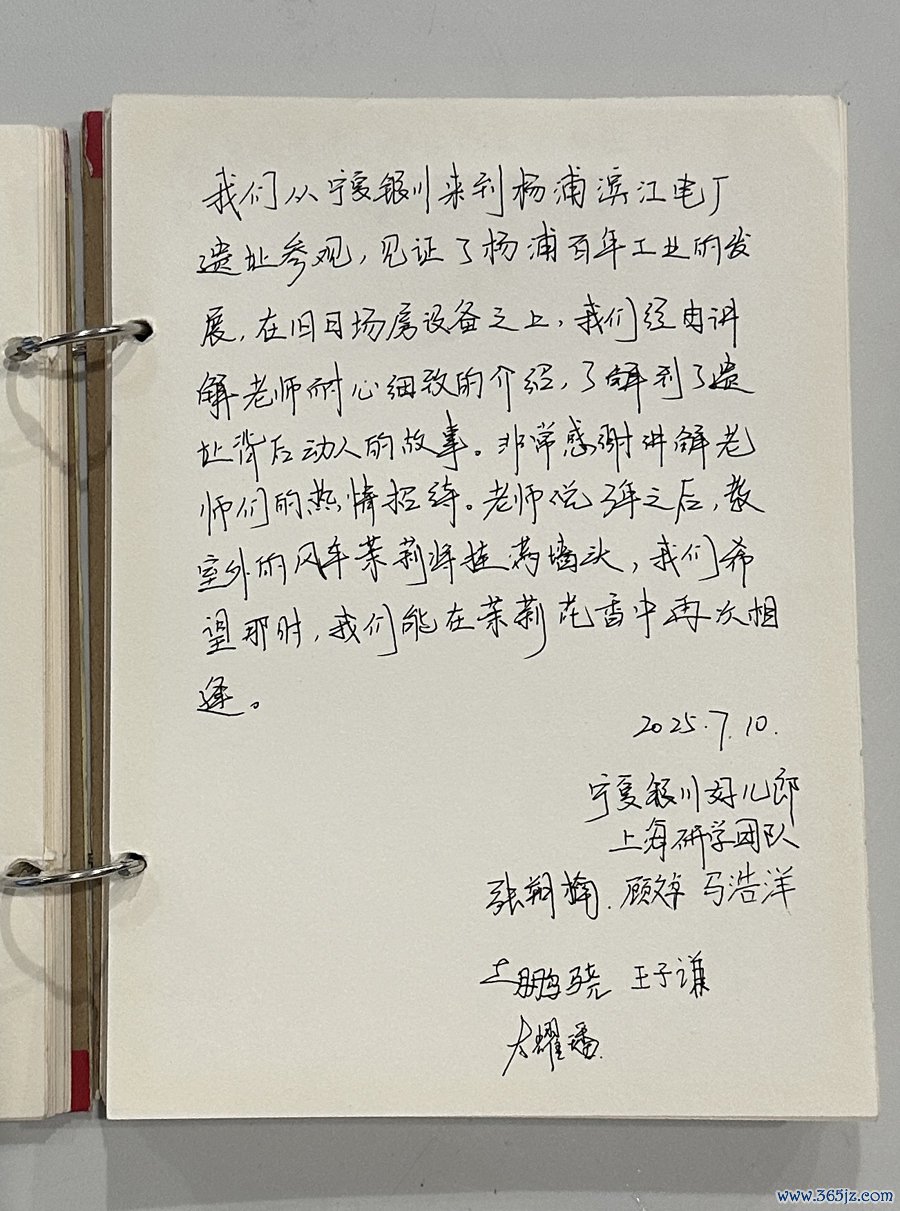 我们从宁夏银川来到杨浦滨江电厂
遗址参观，见证了杨浦百年工业的发
展，在旧日场房设备之上，我们经由讲
解老师耐心细致的介绍，了解到了遗
址背后动人的故事。非常感谢讲解老
师们的热情招待。老师说3年之后，教
室外的风车茉莉将挂满墙头，我们希
望那时，我们能在茉莉花香中再次相
逢。
2025.7.10.
宁夏银川好儿郎
上海研学团队
张朔楠. 顾 马浩洋
鹏骁 王子谦
耀
www.365jz.com